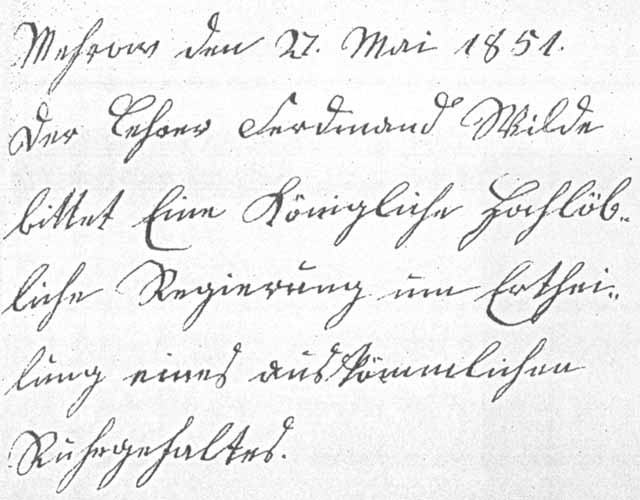 Mehrow den 27. Mai 1851.
Der Lehrer Ferdinand Wilde
bittet Eine Königliche Hochlöb-
liche Regierung um Erthei-
lung eines auskömmlichen
Ruhegehaltes.